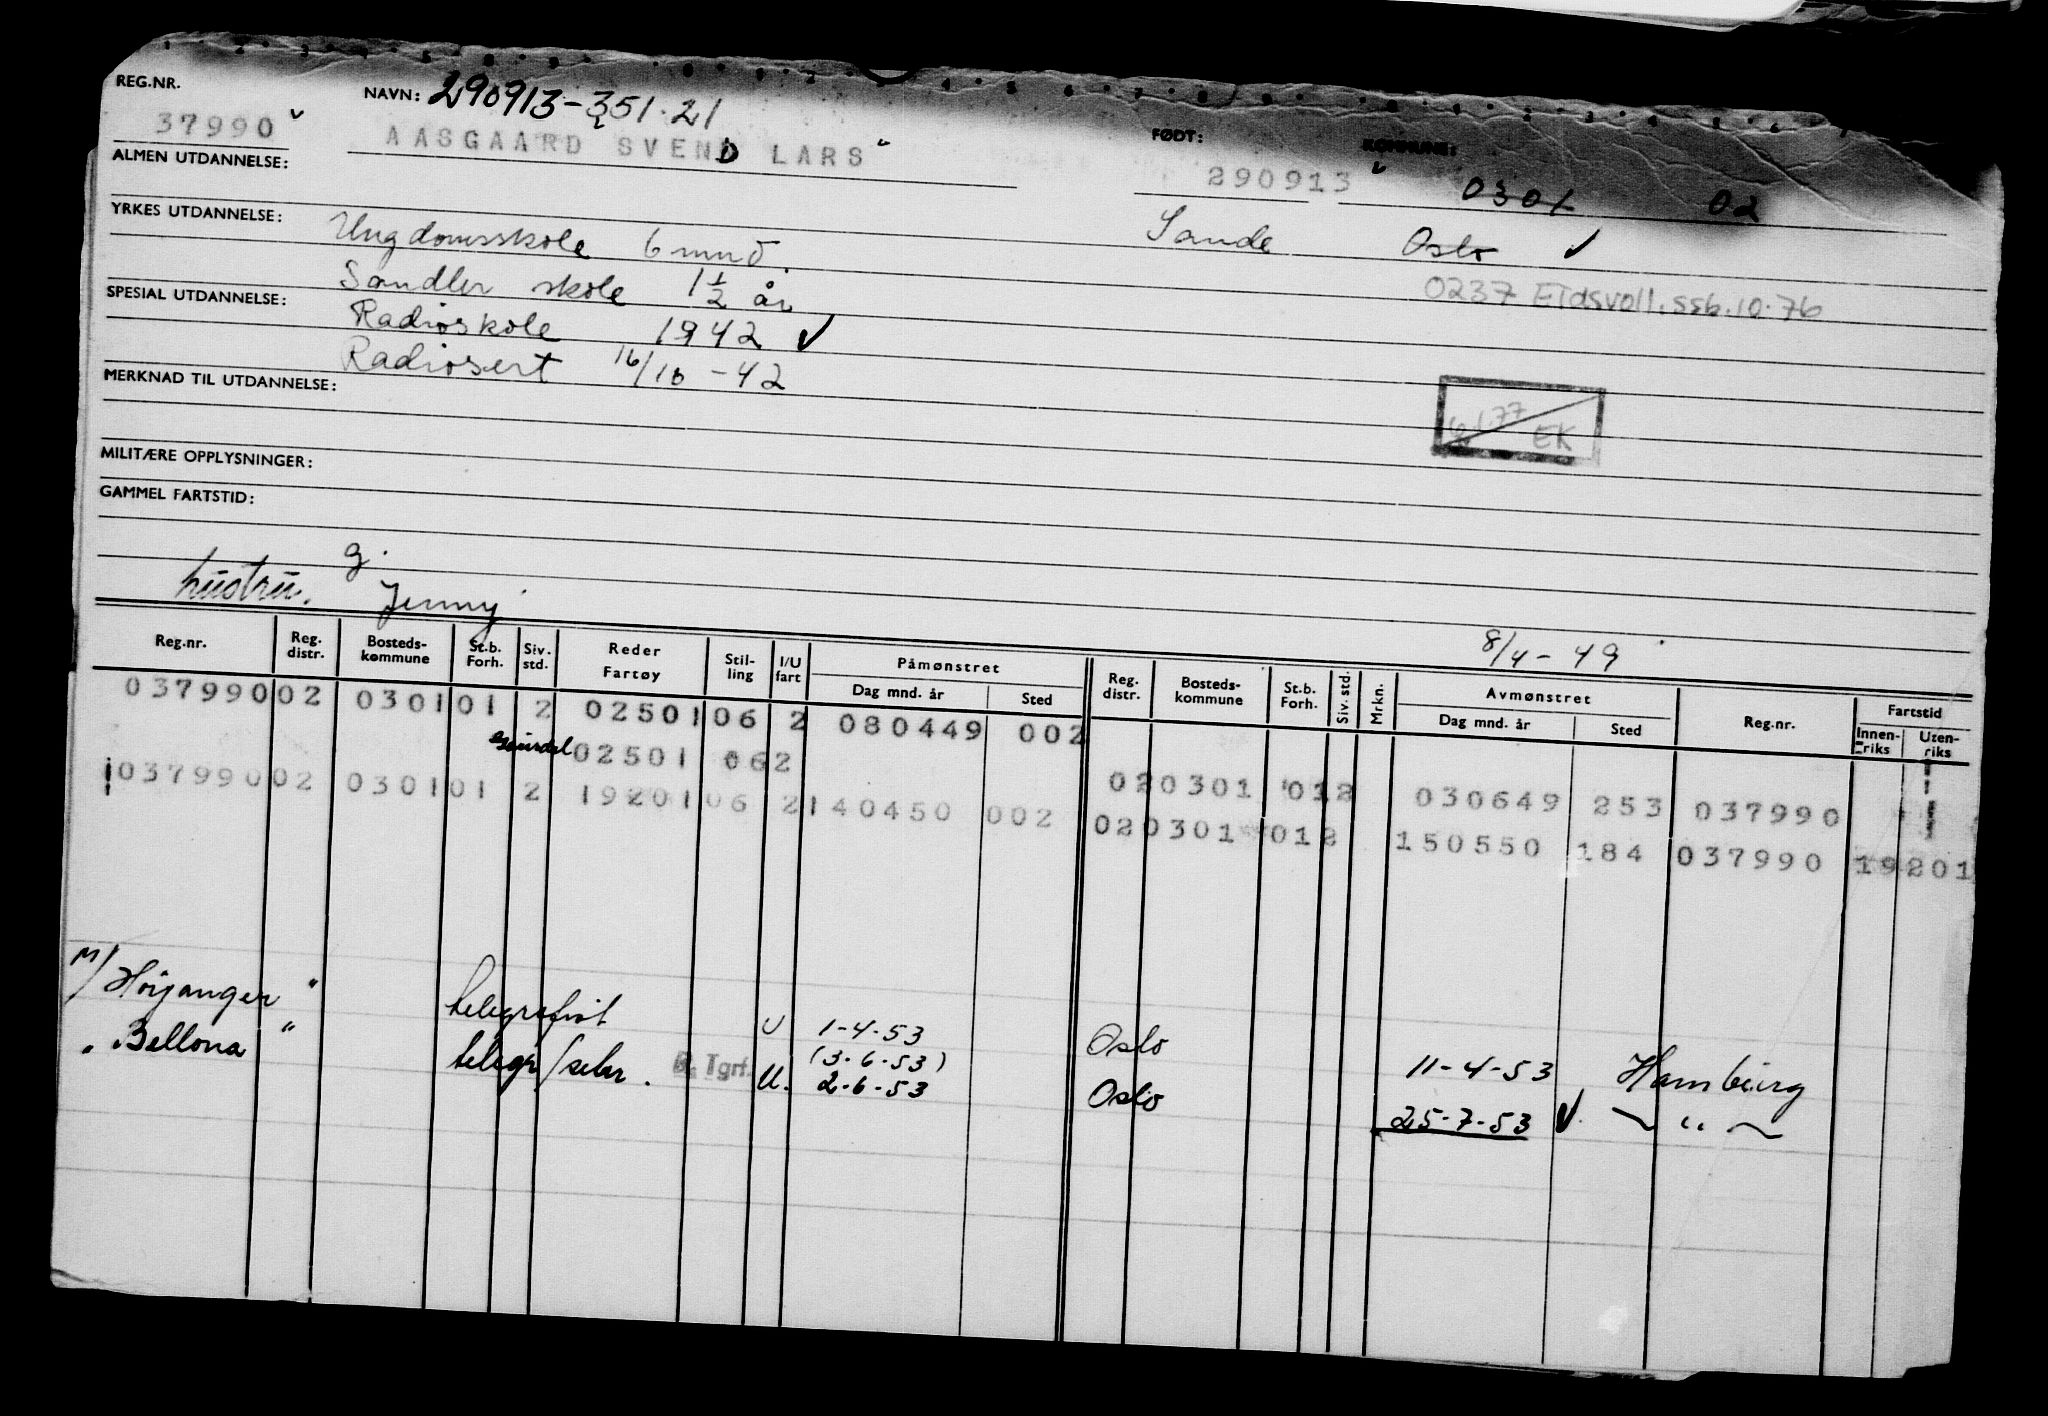 REG.NR.
NAVN: 290913-351.21
37990
AASGAARD SVEND LARS
FØDT:
KOMMUNE:
290913
0301 02
ALMEN UTDANNELSE:
YRKES UTDANNELSE:
Ungdomsskole 6 mnd.
Sande Oslo ✓
Sandler skole 1 1/2 år
0237 Eidsvoll.ssb.10.76
SPESIAL UTDANNELSE:
Radioskole 1942 ✓
Radiosert 16/10-42
MERKNAD TIL UTDANNELSE:
6/1 77 EK
MILITÆRE OPPLYSNINGER:
GAMMEL FARTSTID:
g.
hustru. Jenny
8/4-49
Reg.nr. Reg. distr. Bosteds-kommune St.b. Forh. Siv. std. Reder Fartøy Stil-ling I/U fart Påmønstret Dag mnd. år Sted Reg. distr. Bosteds-kommune St.b. Forh. Siv. std. Mrkn. Avmønstret Dag mnd. år Sted Reg.nr. Fartstid Innen-riks Uten-riks
037990 02 0301 01 2 02501 06 2 080449 002
02501 06 2
02 0301 01 2 030649 253 037990
037990 02 0301 01 2 19201 06 2 140450 002
02 0301 01 2 150550 184 037990 19201
M/ Høyanger " telegrafist U 1-4-53 Oslo 11-4-53 Hamburg
(3-6-53)
" Bellona " telegr/sekr. R. Tgrf. U. 2-6-53 Oslo 25-7-53 ✓ ~ " ~